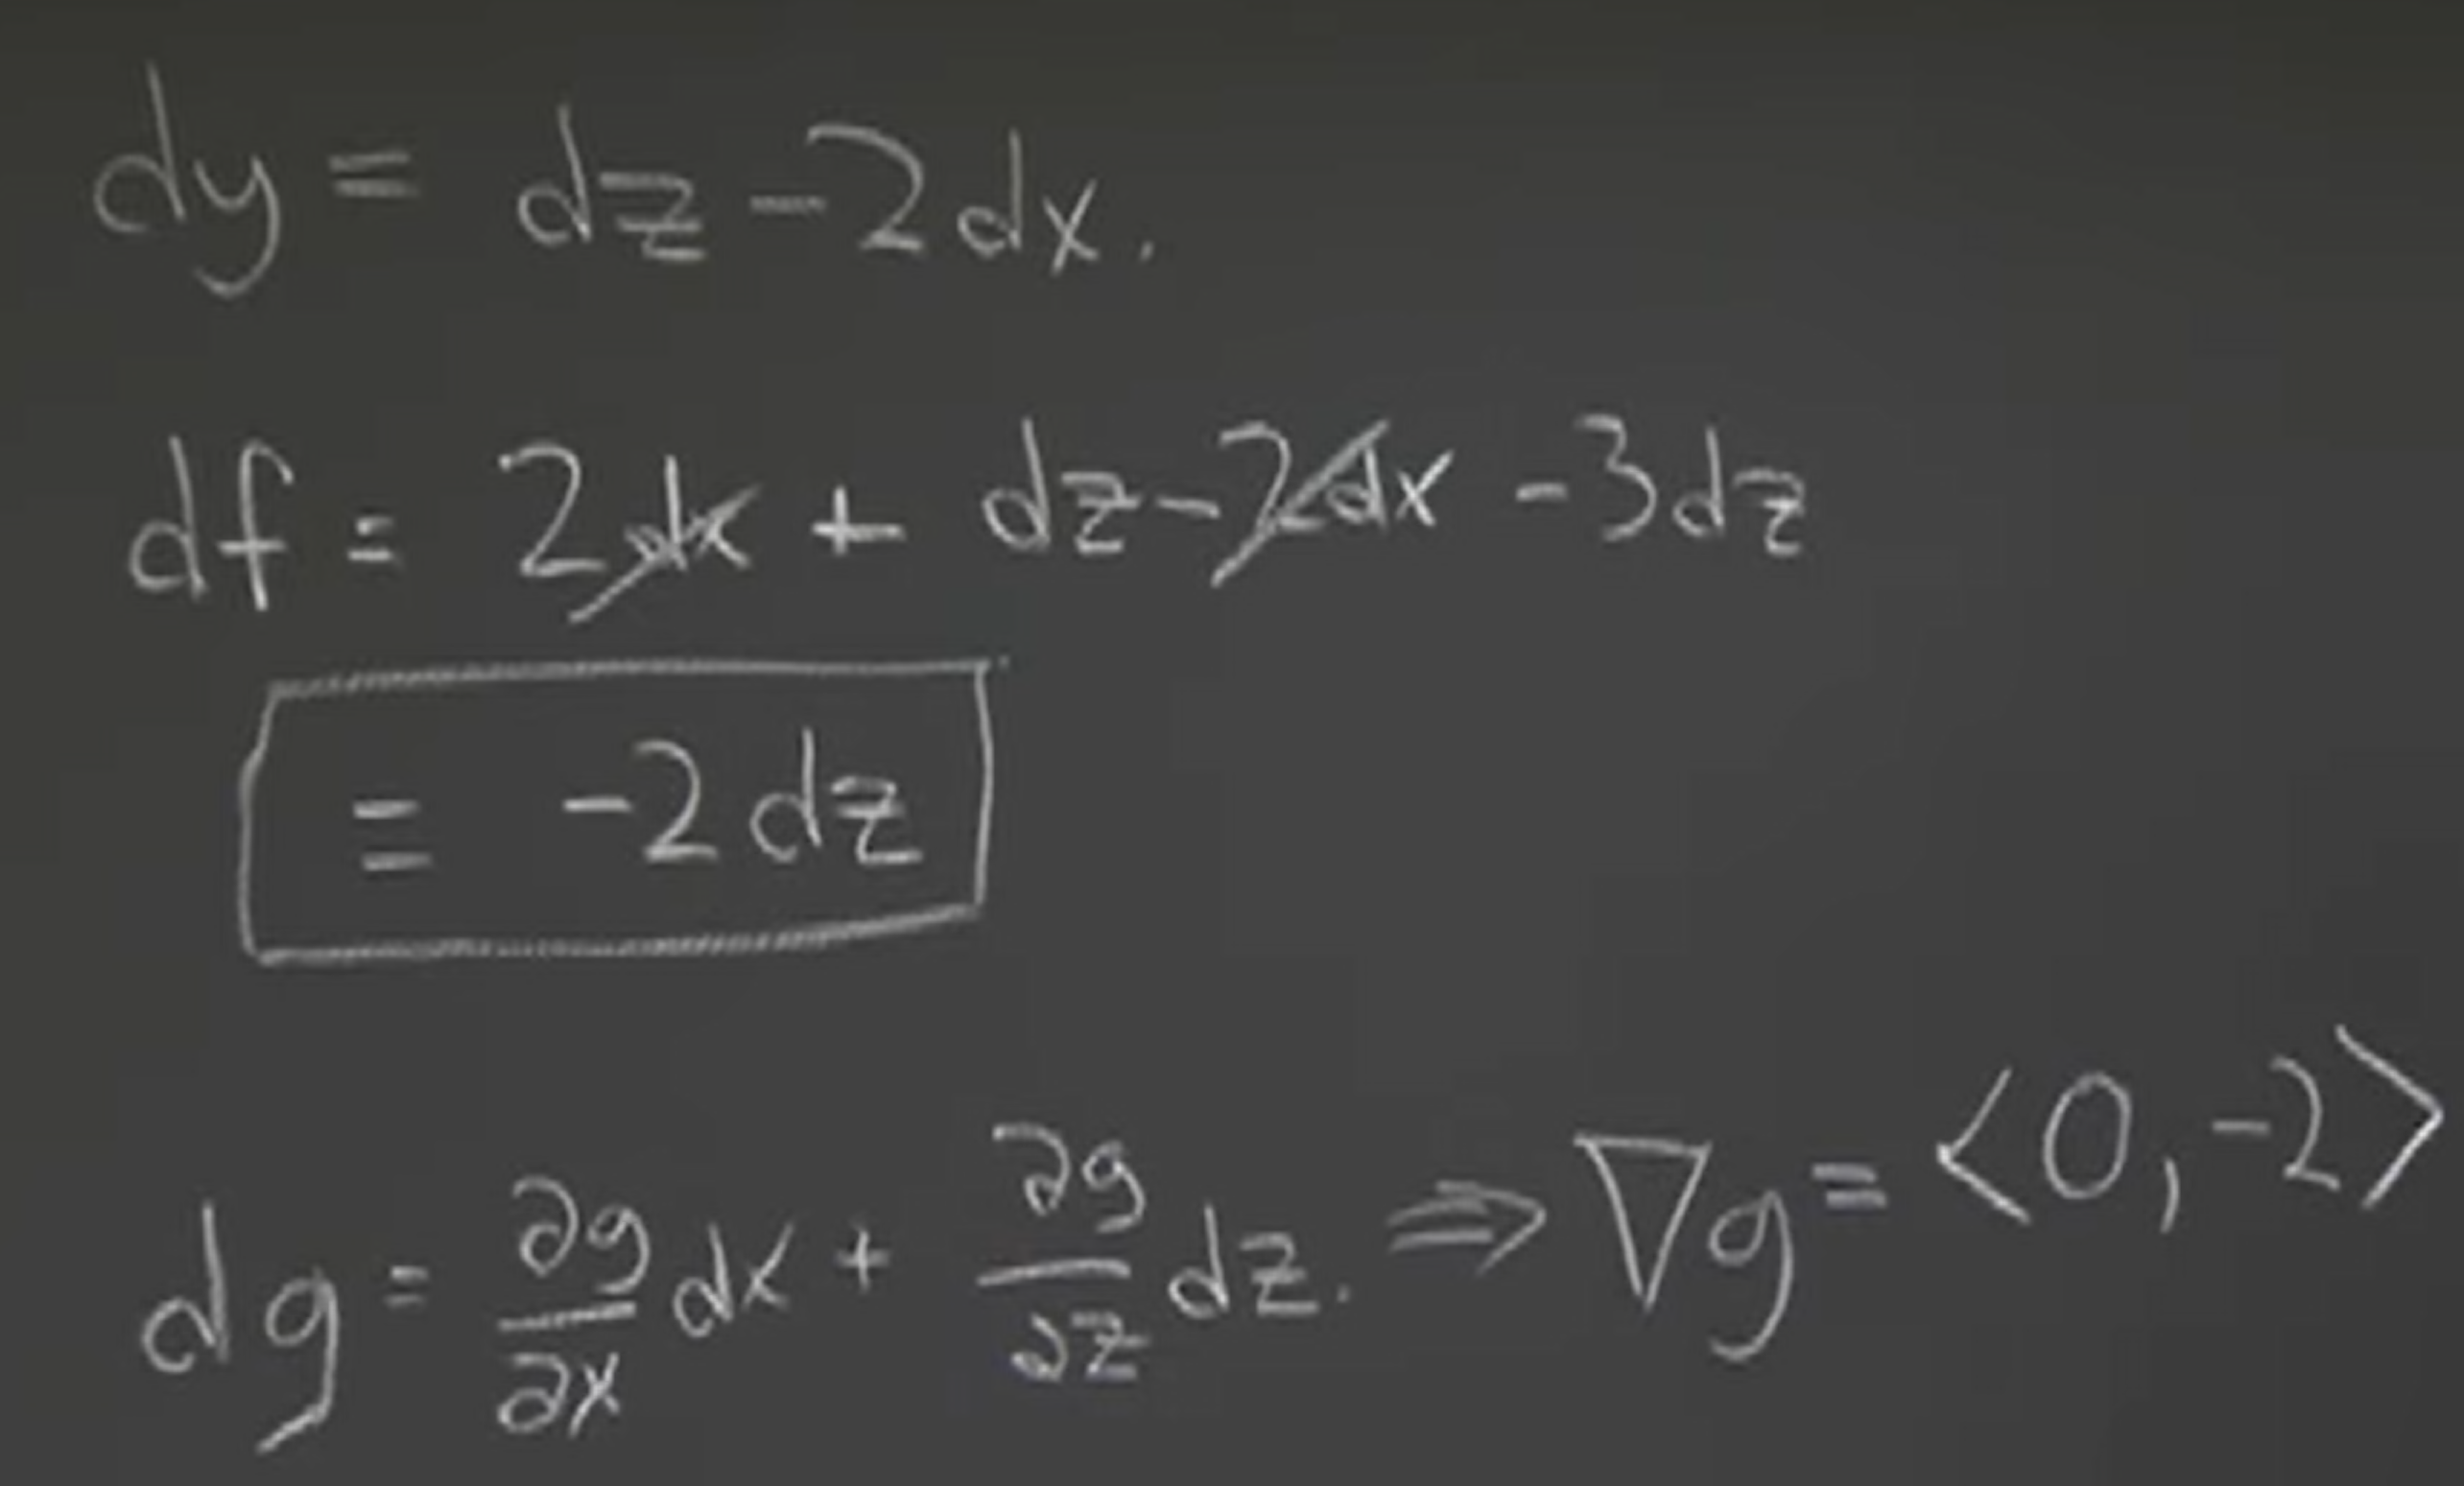 dy = dz - 2dx.
df = 2dx + dz - 2dx - 3dz
= -2dz
dg = ∂g/∂x dx + ∂g/∂z dz. ⇒ ∇g = <0, -2>